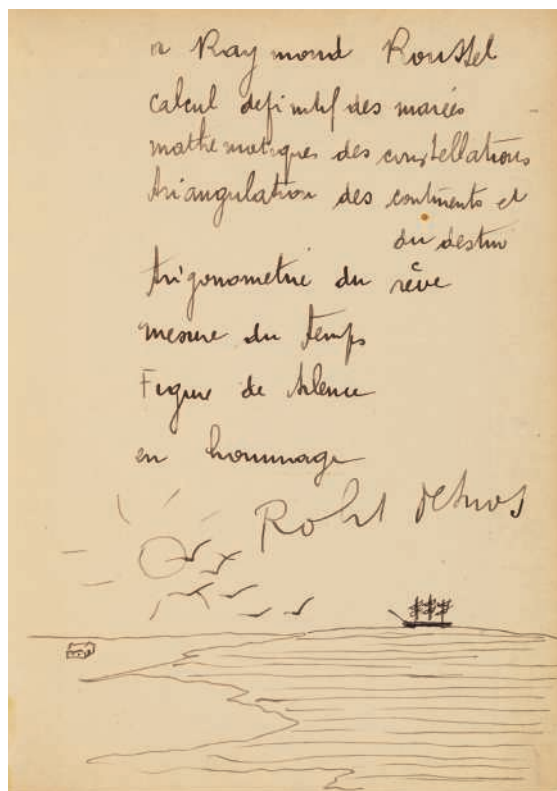 a Raymond Roussel
calcul definitif des marées
mathematiques des constellations
triangulation des continents et
du destin
trigonometrie du rêve
mesure du temps
Figure de silence
en hommage
Robert Desnos